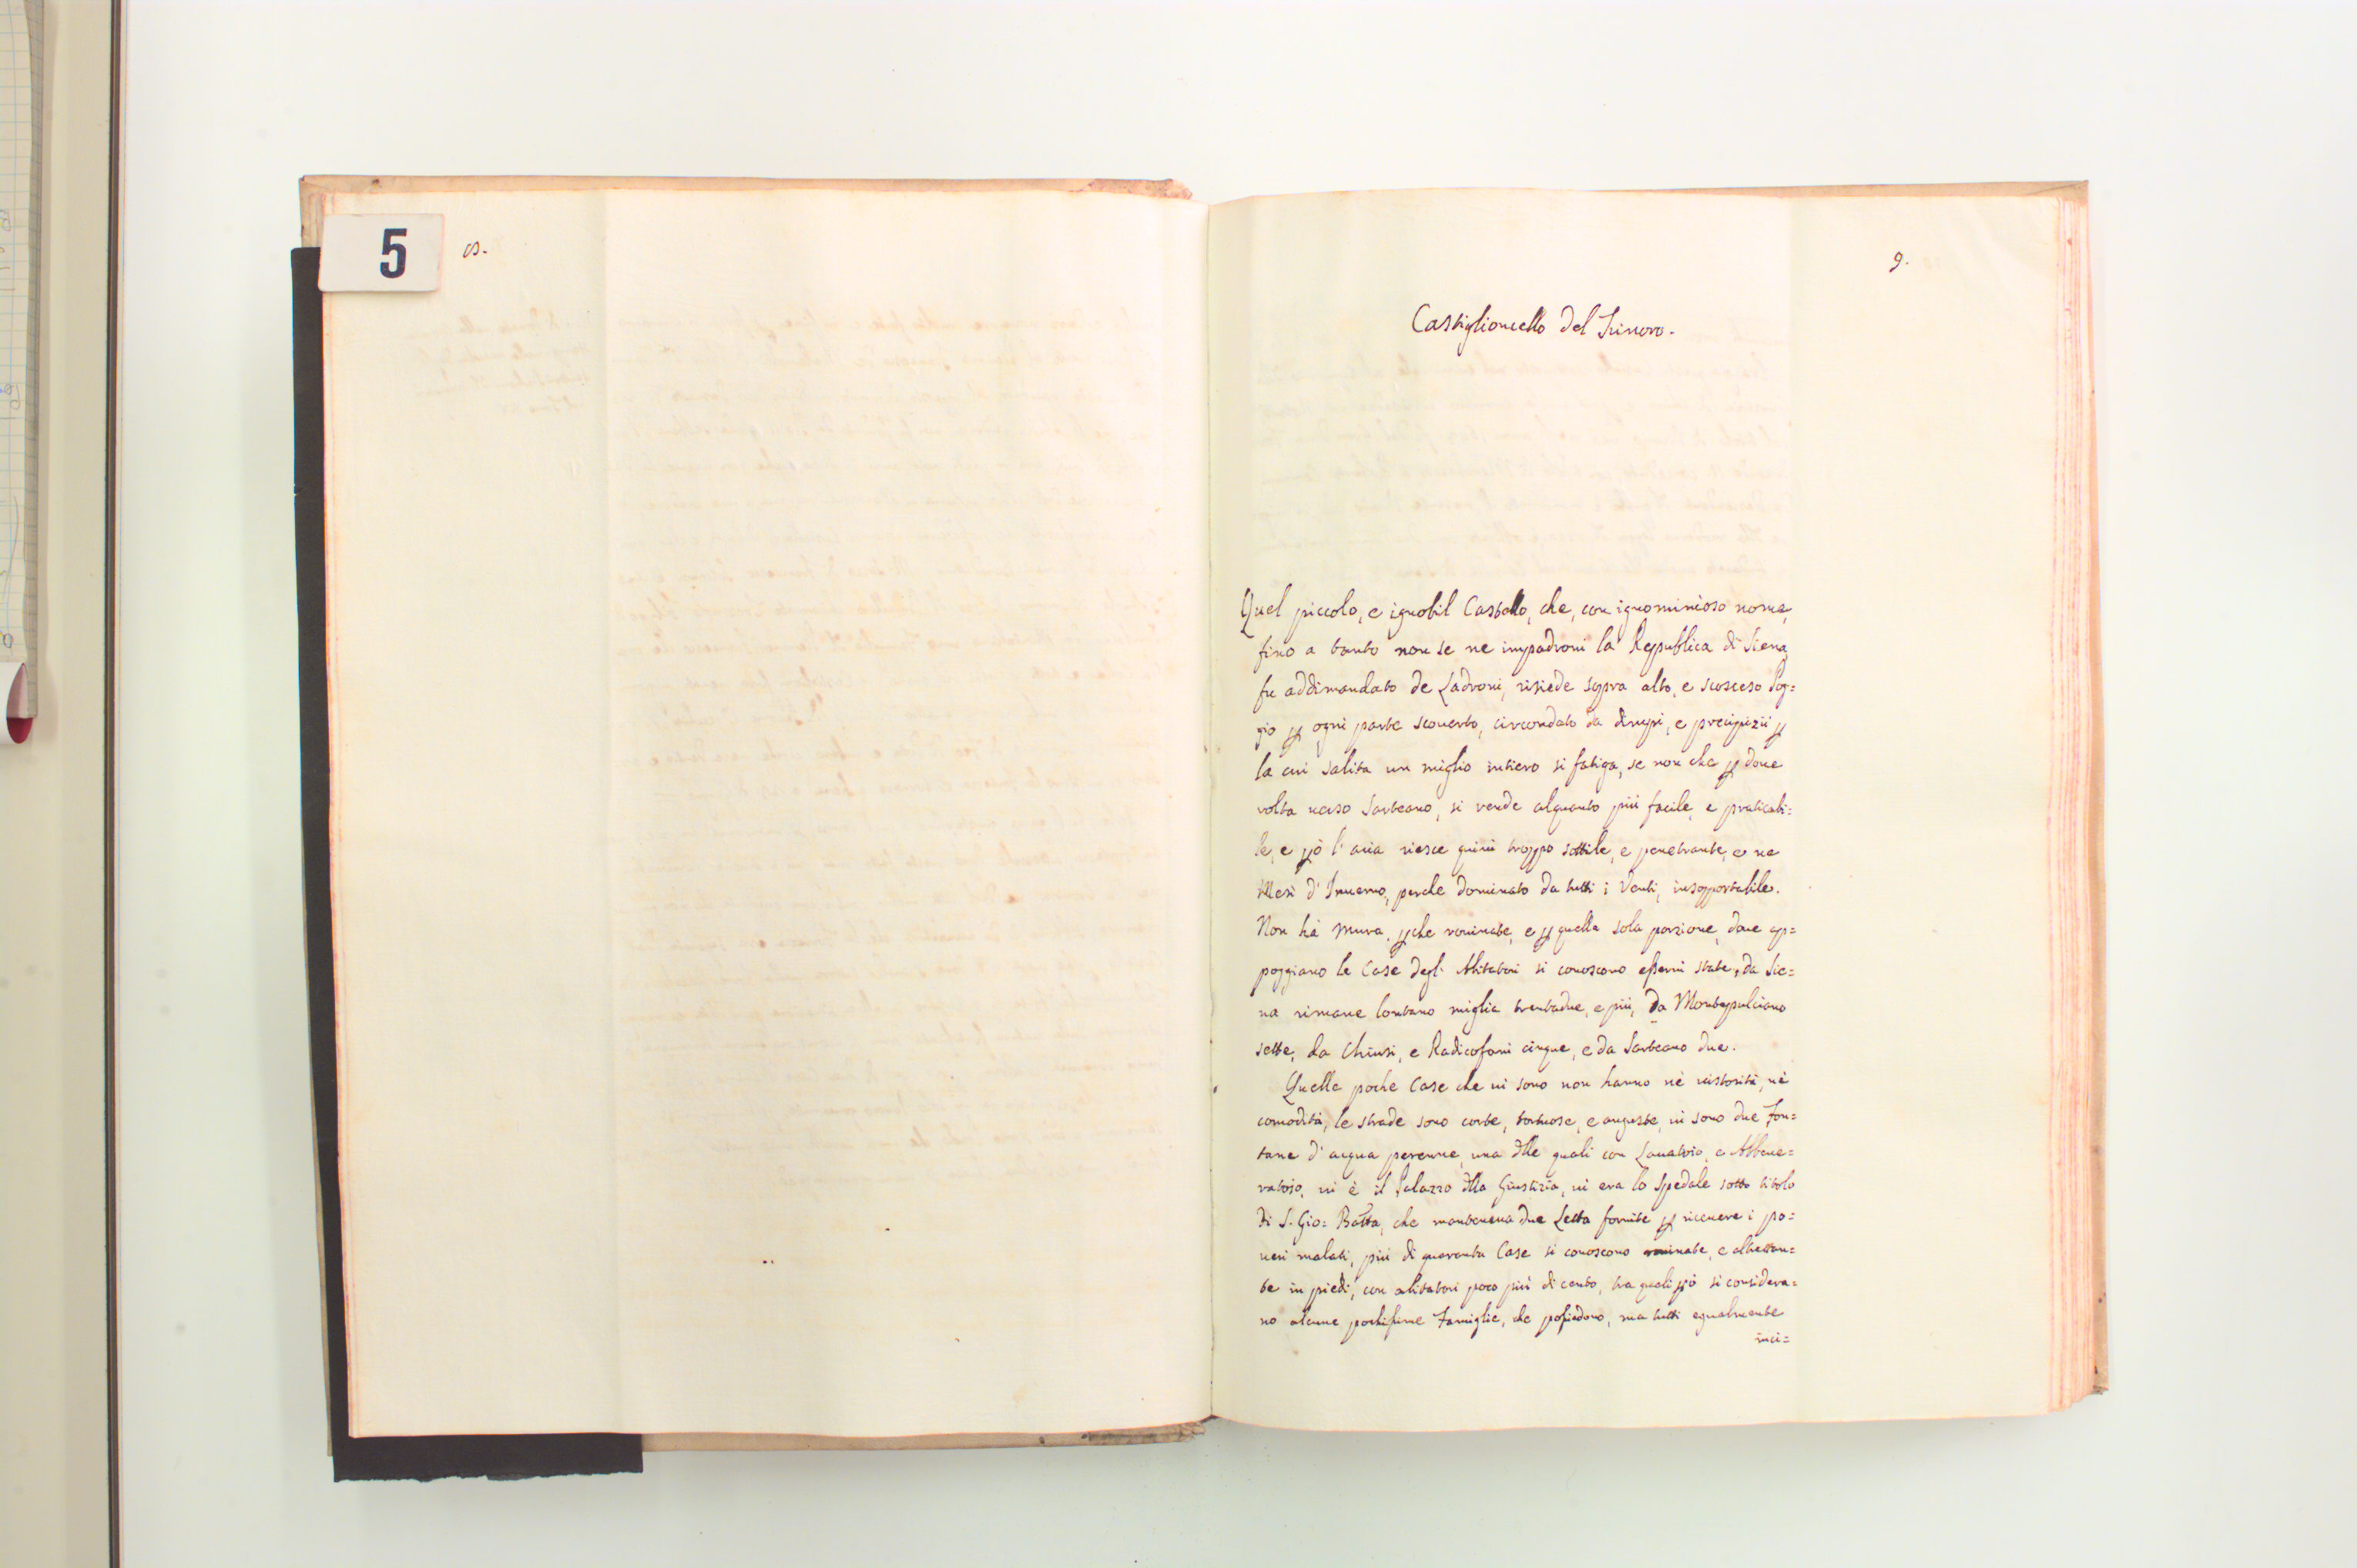 5
8.
9.
Castiglioncello del Trinoro.
Quel piccolo, e ignobil Castello, che, con ignominioso nome,
fino a tanto non se ne impadroni la Republica di Siena,
fu addimandato de Ladroni, risiede sopra alto, e scosceso Pog=
gio p ogni parte scouerto, circondato da dirupi, e precipizii p
la cui salita un miglio intiero si fatiga, se non che p doue
volta uerso Sarteano, si rende alquanto più facile, e praticabi=
le, e pò l'aria riesce quiui troppo sottile, e penetrante, e ne
Mesi d'Inuerno, perche dominato da tutti i Venti, insopportabile.
Non hà Mura, pche rouinate, e p quella sola porzione, doue ap=
poggiano le Case degli Abitatori si conoscono esserui state, da Sie=
na rimane lontano miglia trentadue, e più, da Montepulciano
sette, da Chiusi, e Radicofani cinque, e da Sarteano due.
Quelle poche Case che ui sono non hanno nè uistosità, nè
comodità, le strade sono corte, tortuose, e anguste, ui sono due Fon=
tane d'acqua perenne, una dlle quali con Lauatoio, e Abbeue=
ratoio, ui è il Palazzo dlla Giustizia, ui era lo Spedale sotto titolo
di S. Gio: Batta, che manteneua due Letta fornite p riceuere i po=
ueri malati, più di quaranta Case si conoscono rouinate, e altrettan=
te in piedi, con abitatori poco più di cento, tra quali pò si considera=
no alcune pochissime Famiglie, che possiedono, ma tutti egualmente
inci=